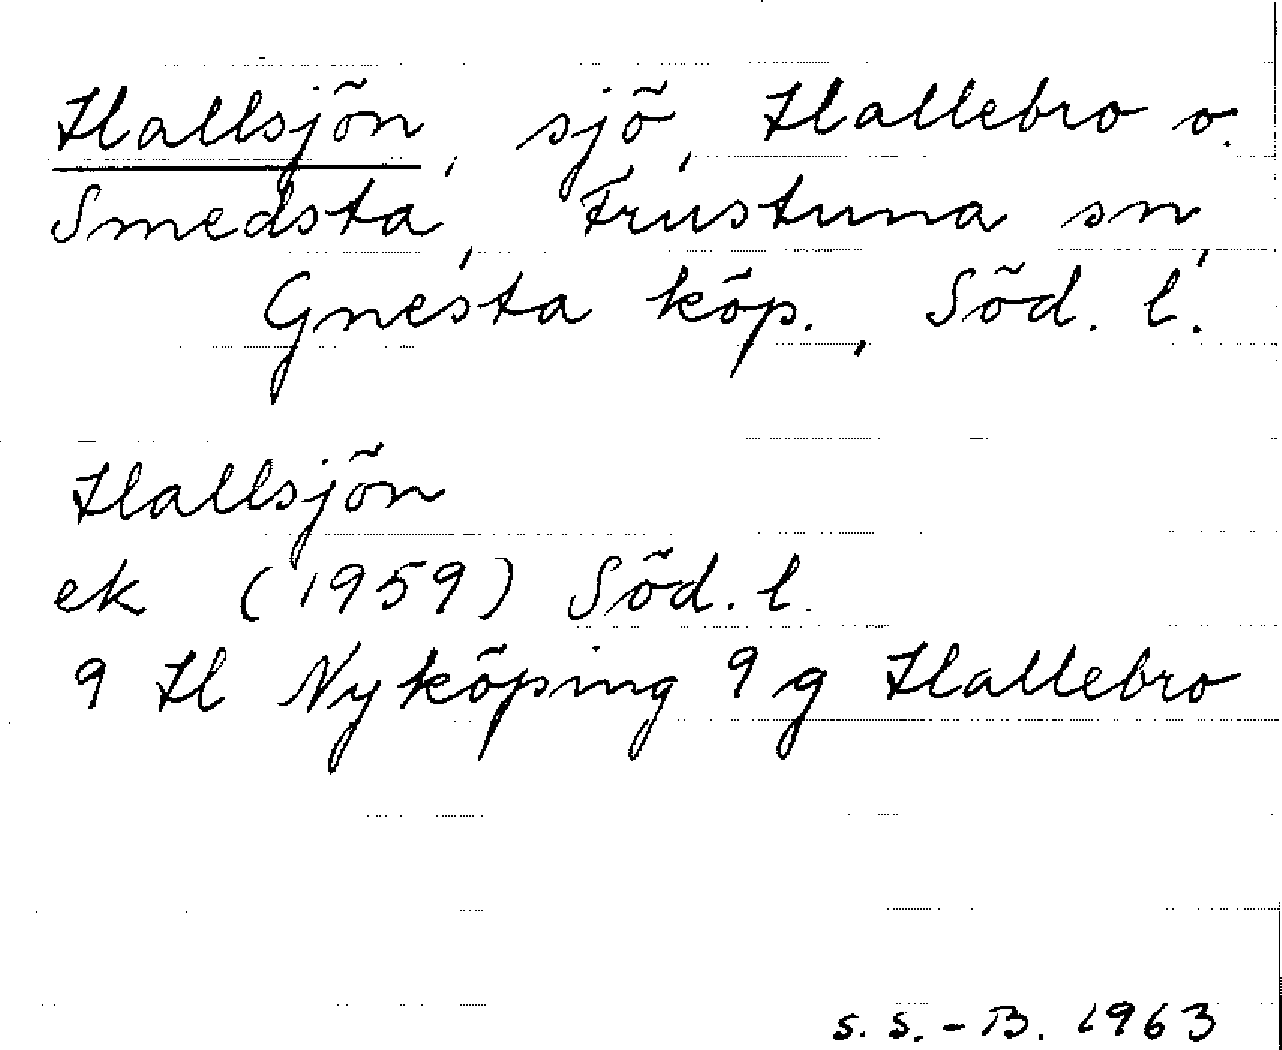 Hallsjön, sjö, Hallebro o.
Smedsta, Frustuna sn,
Gnesta köp., Söd. l.
Hallsjön
ek (1959) Söd. l.
9 H Nyköping 9 g Hallebro
S. S. - B. 1963